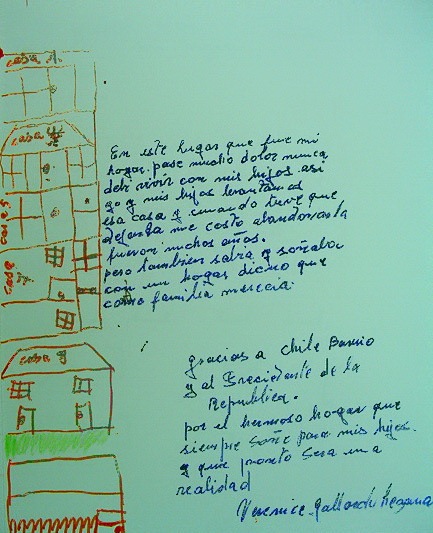 casa 1.
casa
casa 5
casa
En este lugar que fue mi
hogar. pase mucho dolor nunca
deb vivir con mis hijos asi
yo y mis hijos levantamos
esa casa y cuando tuve que
dejarla me costo abandonarla
fueron muchos años.
pero tambien sabia y soñaba
con un hogar dicno que
como familia merecia.
casa 9
gracias a Chile Barrio
y al Precidente de la
Republica.
por el hermoso hogar que
siempre soñe para mis hijos.
y que pronto sera una
realidad
Verenice Gallardo